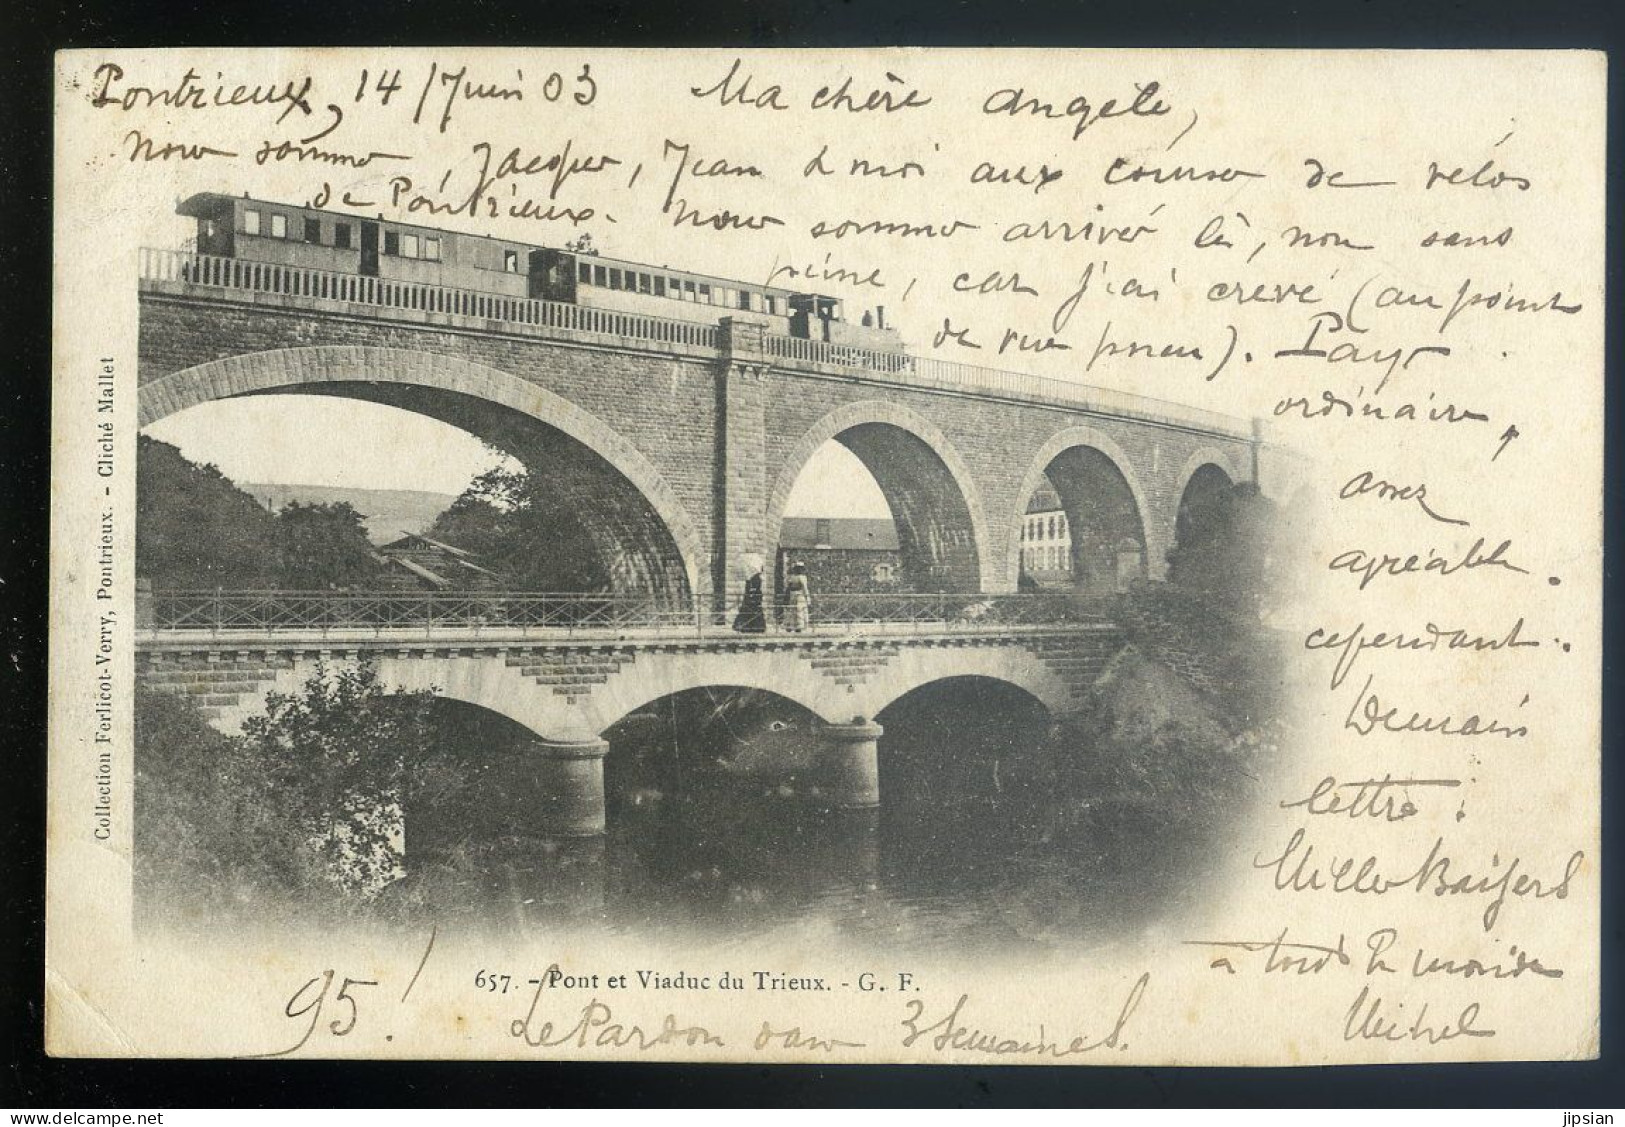 Pontrieux, 14 Juin 03 Ma chère Angèle,
Nous sommes, Jacques, Jean & moi aux courses de vélos
de Pontrieux. Nous sommes arrivés là, non sans
peine, car j'ai crevé (au point
de vue pneu). Pays
ordinaire,
assez
agréable
cependant.
Demain
lettre.
Milles Baisers
à tout le monde
Michel
95!
Le Pardon dans 3 Semaines.
657. - Pont et Viaduc du Trieux. - G. F.
Collection Ferlicot-Verry, Pontrieux. - Cliché Mallet
delcampe.net
jipsian